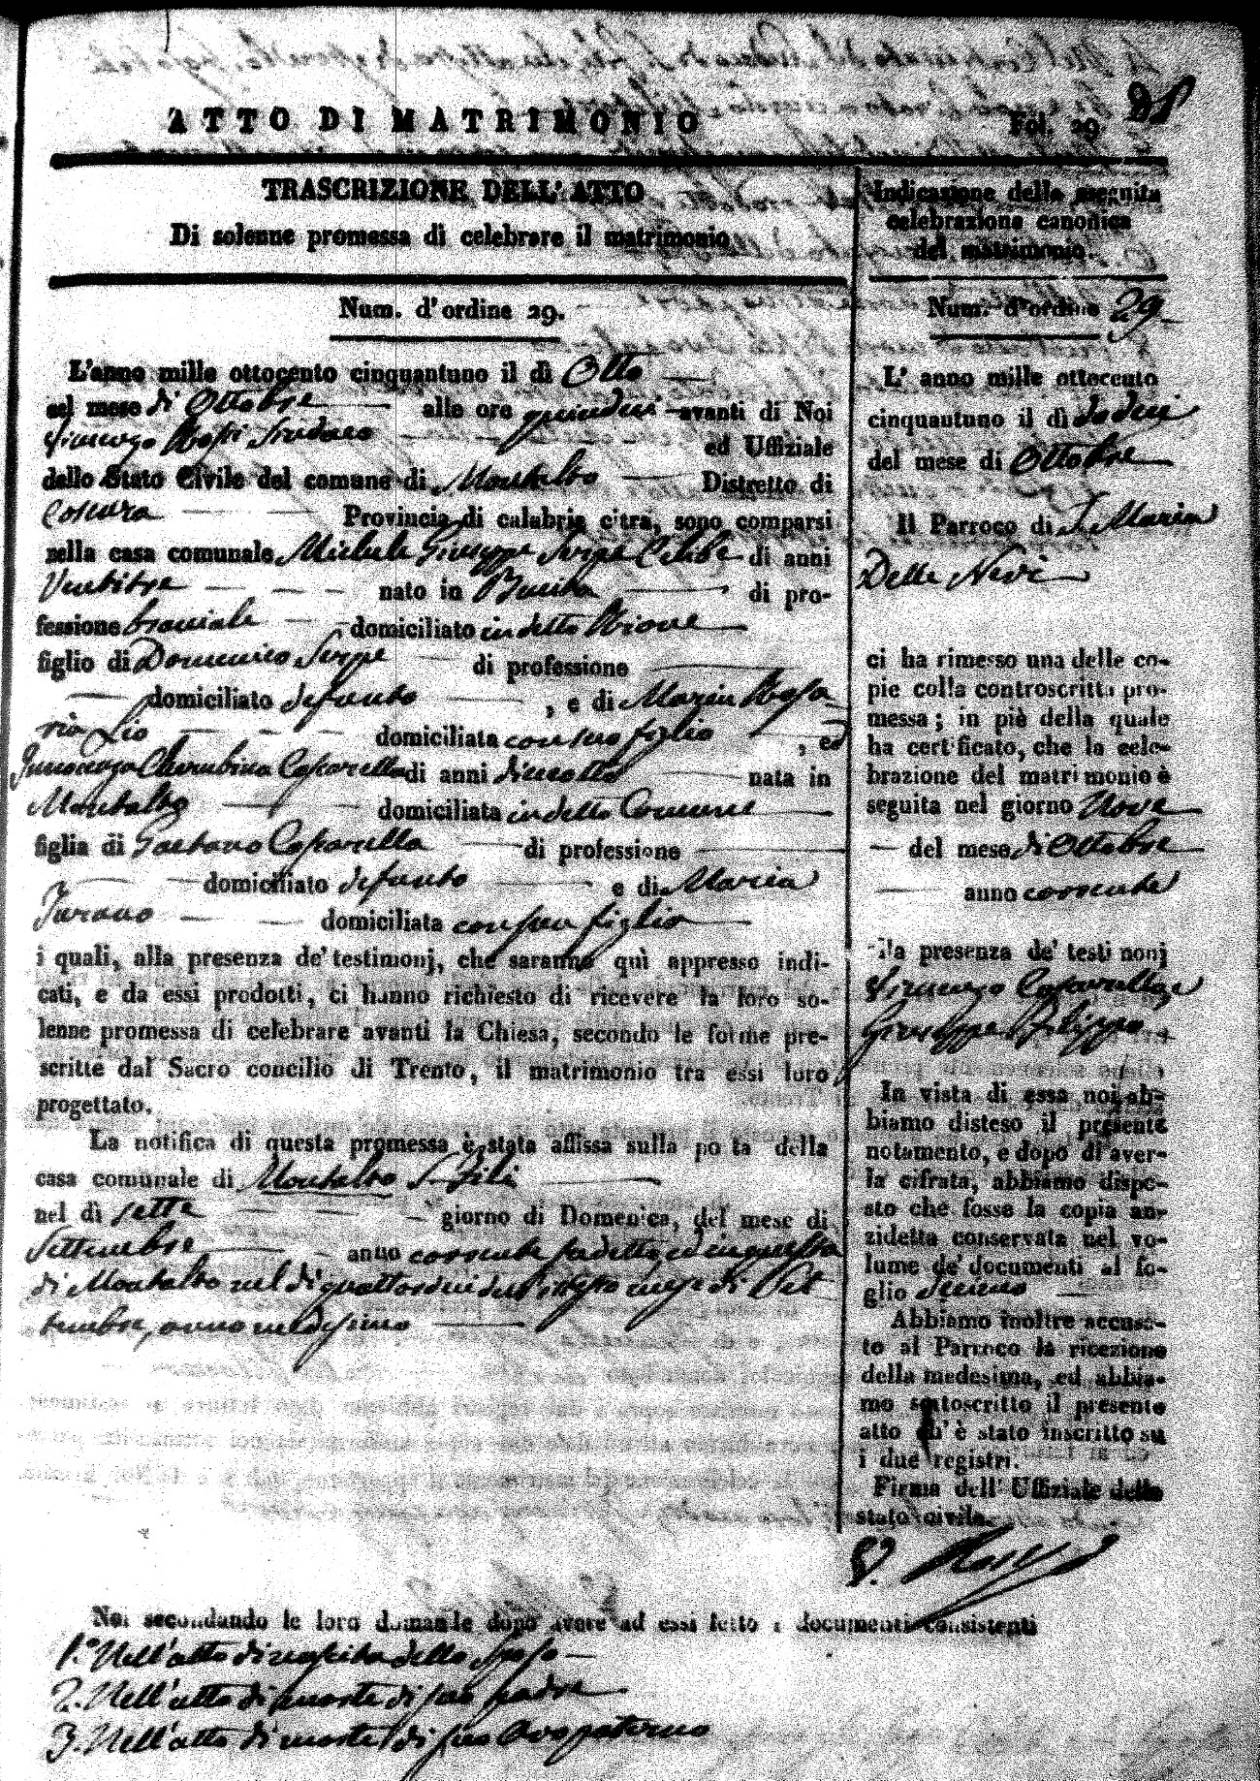 ATTO DI MATRIMONIO
Fol. 29.
TRASCRIZIONE DELL'ATTO
Di solenne promessa di celebrare il matrimonio
Num. d'ordine 29.
L'anno mille ottocento cinquantuno il dì Otto
nel mese di Ottobre alle ore quindici avanti di Noi
Vincenzo Rossi Sindaco ed Uffiziale
dello Stato Civile del comune di Montalto Distretto di
Cosenza Provincia di calabria citra, sono comparsi
nella casa comunale Michele Giuseppe Serpe Celibe di anni
Ventitre nato in di pro-
fessione bracciale domiciliato in detto Rione
figlio di Domenico Serpe di professione
domiciliato defunto , e di Maria Rosa
ria Lio domiciliata con suo figlio , ed
Innocenza Cherubina Caparella di anni dieciotto nata in
Montalto domiciliata in detto Comune
figlia di Gaetano Caparella di professione
domiciliato defunto e di Maria
Turano domiciliata con sua figlia
i quali, alla presenza de' testimonj, che saranno quì appresso indi-
cati, e da essi prodotti, ci hanno richiesto di ricevere la loro so-
lenne promessa di celebrare avanti la Chiesa, secondo le forme pre-
scritte dal Sacro concilio di Trento, il matrimonio tra essi loro
progettato.
La notifica di questa promessa è stata affissa sulla po ta della
casa comunale di Montalto S. Fili
nel dì sette giorno di Domenica, del mese di
Settembre anno corrente sudetto, ed in questa
di Montalto nel dì quattordici dello stesso mese di Set
tembre, anno medesimo
Indicazione della seguita
celebrazione canonica
del matrimonio.
Num. d'ordine 29
L' anno mille ottocento
cinquantuno il dì dodeci
del mese di Ottobre
Il Parroco di S. Maria
Delle Nevi
ci ha rimesso una delle co-
pie colla controscritta pro-
messa; in piè della quale
ha certificato, che la cele-
brazione del matrimonio è
seguita nel giorno Nove
del mese di Ottobre
anno corrente
alla presenza de' testimonj
Vincenzo Caparella, e
Giuseppe Filippo
In vista di essa noi ab-
biamo disteso il presente
notamento, e dopo di aver-
la cifrata, abbiamo dispo-
sto che fosse la copia an-
zidetta conservata nel vo-
lume de' documenti al fo-
glio
Abbiamo inoltre accusa-
to al Parroco la ricezione
della medesima, ed abbia-
mo sottoscritto il presente
atto ch' è stato inscritto su
i due registri.
Firma dell' Uffiziale dello
stato civile.
V. Rossi
Noi secondando le loro domande dopo avere ad essi letto i documenti consistenti
1.° Nell'atto di nascita dello Sposo
2. Nell'atto di morte di suo padre
3. Nell'atto di morte di suo Avo paterno